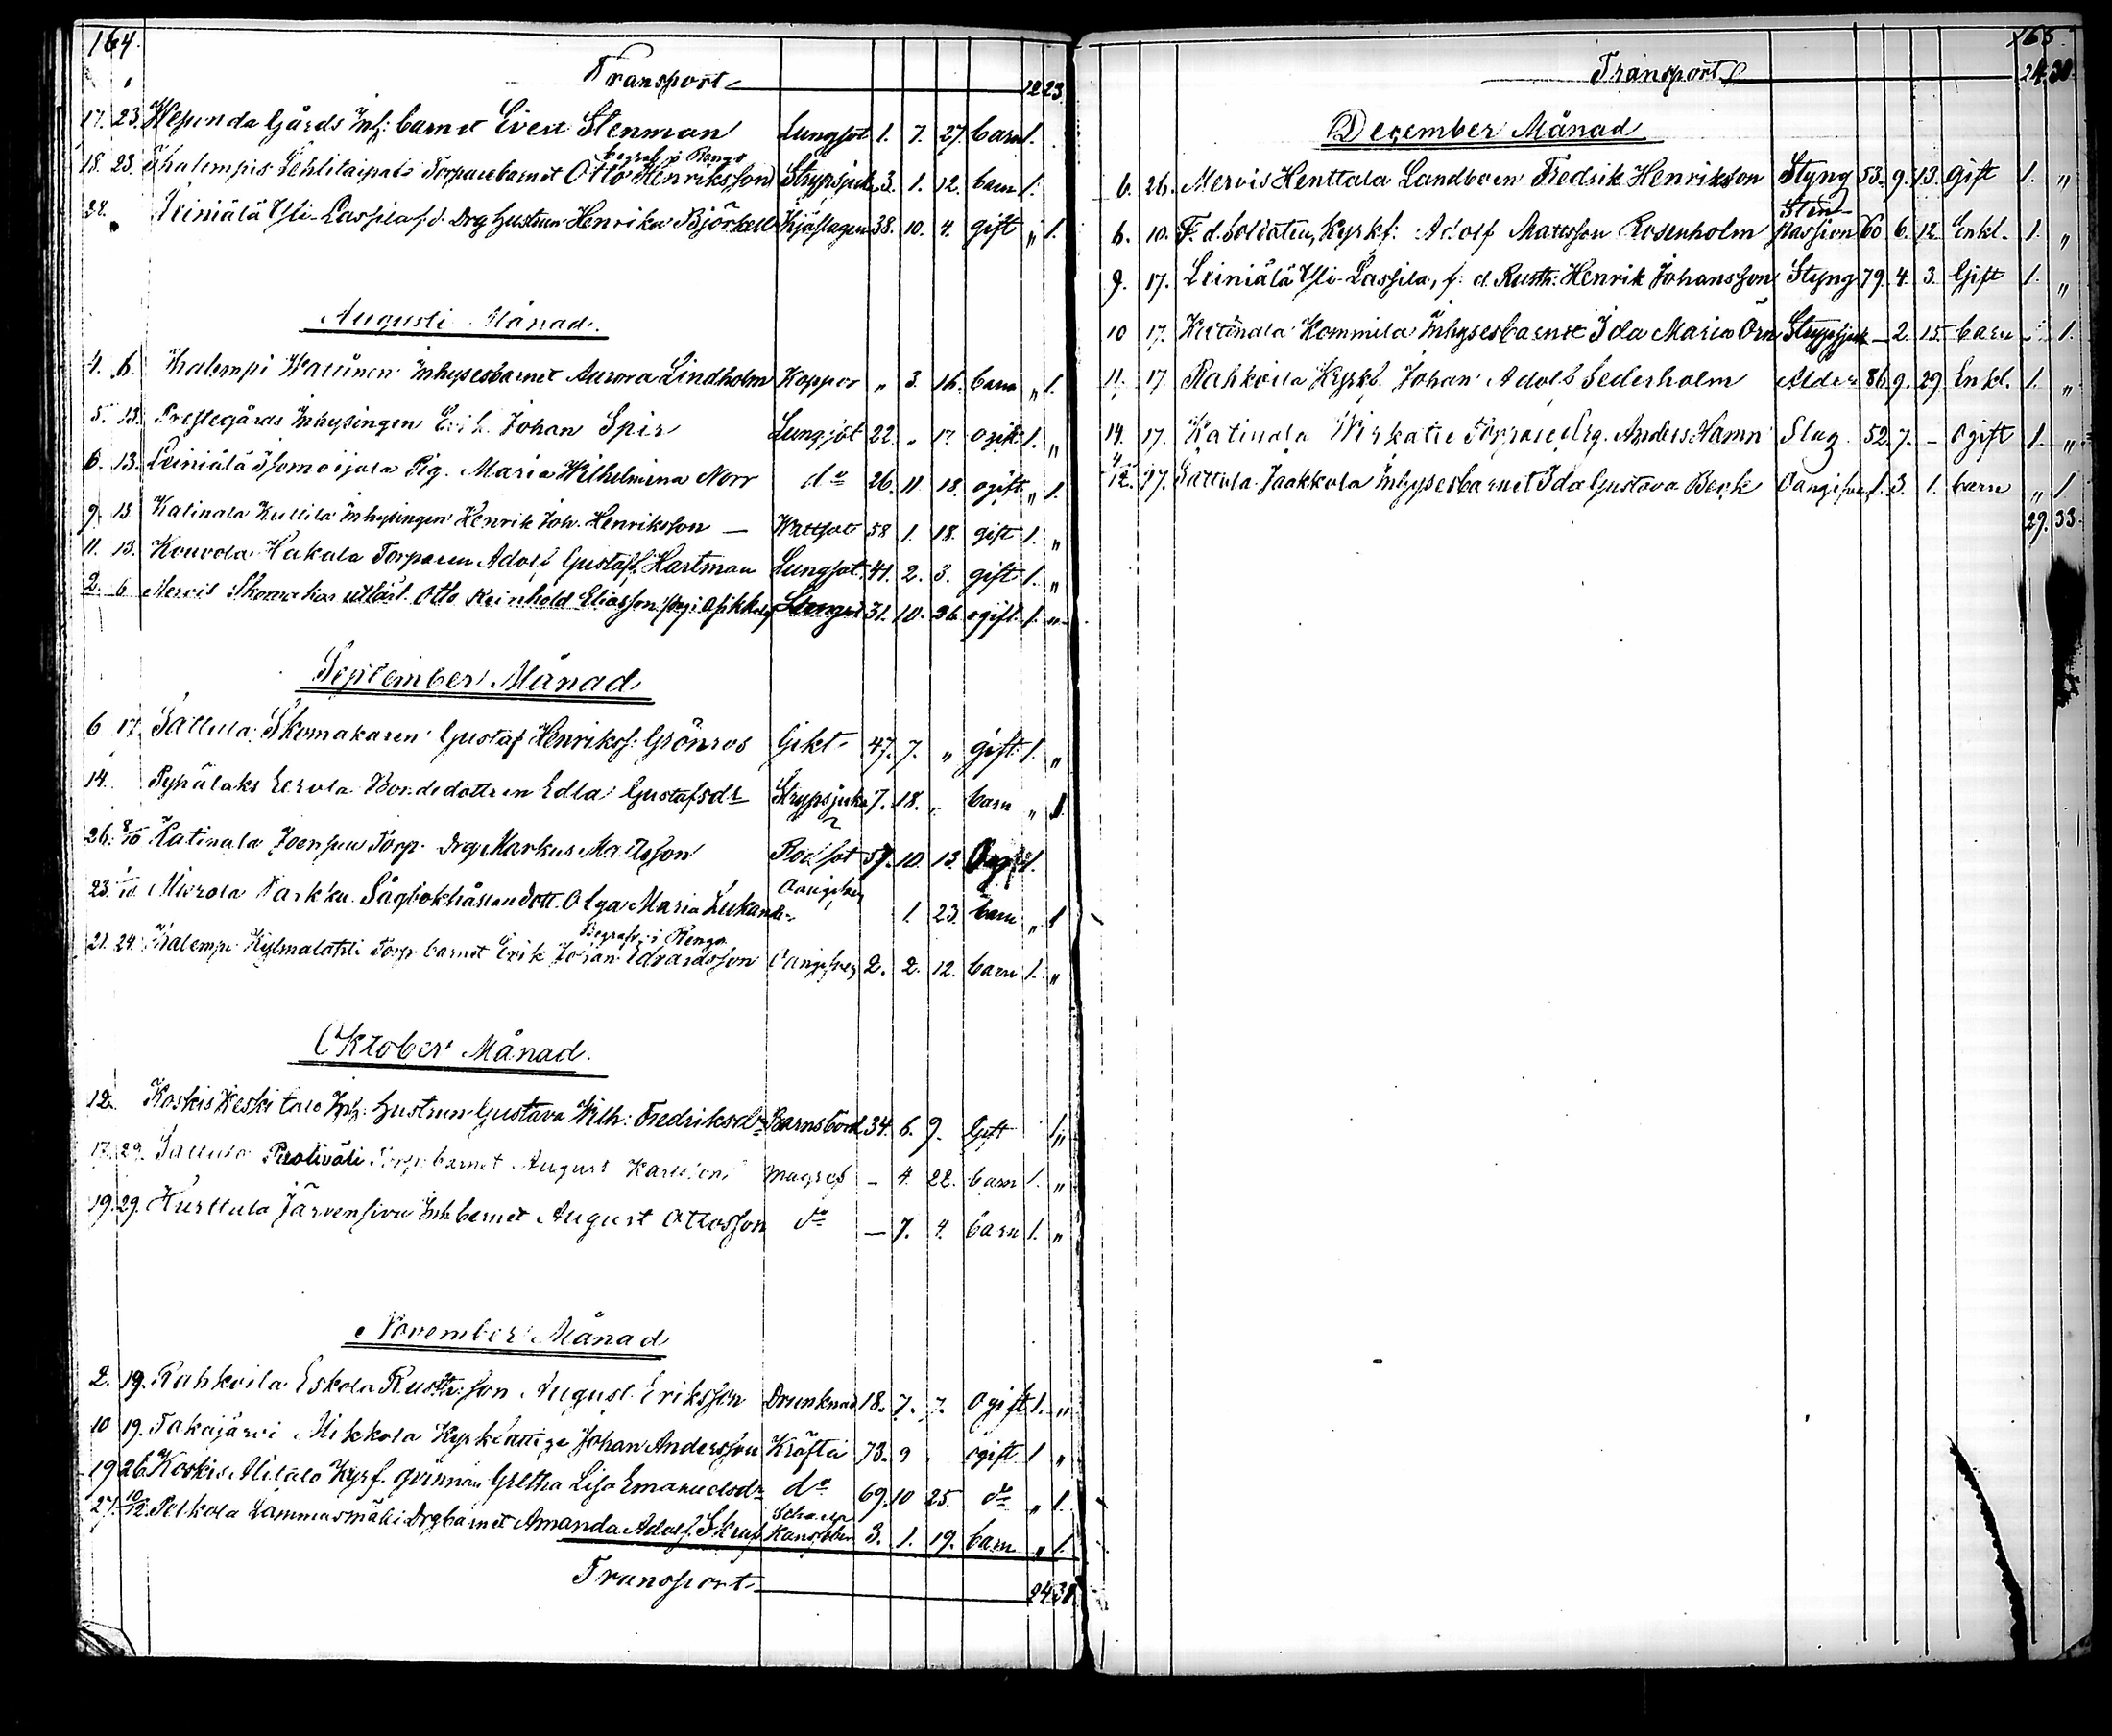 164.
Transport 12 23
17. 23. Gårds Inh: barnet Stenman Lungsot 1. 7. 27. barn 1.
begrafv. i Rengo
18. 23. Torparebarnet Otto Henriksson Strypsjuk 3. 1. 12. barn 1.
22. Leiniälä Yli-Lassila f.d. Drg hustrun Henrika Björkell 38. 10. 4. gift „ 1.
Augusti Månad.
4. 6. Inhysesbarnet Aurora Lindholm Koppor „ 3. 16. barn „ 1.
5. 13. Prestegårds Inhysingen Erik Johan Spir Lungsot 22. „ 17. ogift 1. „
6. 13. Leiniälä Pig. Maria Wilhelmina Norr do 26. 11 18. ogift „ 1.
9. 13 Katinala Kullila Inhysingen Henrik Joh. Henriksson — Wattsot 58 1. 18. gift 1. „
11. 13. Kouvola Hakala Torparen Adolf Gustafs. Hartman Lungsot. 41. 2. 3. gift 1. „
2. 6 Mervis Skomakar Otto Reinhold Eliasson 31. 10. 26 ogift. 1. „
September Månad
6 17. Sattula Skomakaren Gustaf Henrikss. Grönros Gikt 47. 7. „ gift 1. „
14. Eerola Bondedottren Edla Gustafsdr Strypsjuka 7. 18. „ barn „ 1.
26. 8/10 Katinala Joenpuu Torp. Drg. Markus Mattsson Rödsot 59. 10. 13. 1.
23. Olga Maria 1. 23. barn „ 1
Begrafv. i Rengo
21. 24. Torp. barnet Erik Johan Edvardsson 2. 2. 12. barn 1. „
Oktober Månad.
12. Koskis Keskitalo Inh. hustrun Gustava Wilh: Fredriksdr Barnsbörd 34. 6. 9. Gift 1 „
17. 29. Sattula Torp. barnet August Karlsson magref – 4. 22. barn 1. „
19. 29. Hurttula Järvensivu Inh. barnet August Ottosson do — 7. 4. barn 1. „
November Månad
2. 19. Rahkoila Eskola Rustth. son August Eriksson Drunknad 18. 7. 7. Ogift 1. „
10 19. Takajärvi Mikkola Kyrkfattige Johan Andersson Kräfta 73. 9 ogift 1 „
19 26 Koskis Alitalo Kyrkf. qvinnan Gretha Lisa Emanuelsdr do 69. 10 25. do „ 1.
27. 10/12. Pelkola Lammasmäki Drgbarnet Amanda Adolf. 3. 1. 19. barn „ 1.
Transport 24 30
165.
Transport 24. 30.
December Månad
6. 26. Mervis Henttala Landboen Fredrik Henriksson Styng 53. 9. 13. gift 1. „
Sten-
6. 10. F. d. Soldaten, Kyrkf: Adolf Mattsson Rosenholm passion 60 6. 12. Enkl. 1. „
9. 17. Leiniälä Yli-Lassila, f: d. Rustth: Henrik Johansson Styng 79. 4. 3. Gift 1. „
10 17. Katinala Kommila Inhysesbarnet Ida Maria Örn Strypsjuk – 2. 15. barn – 1.
11. 17. Rahkoila Kyrkf. Johan Adolf Sederholm Ålder 86. 9. 29. Enkl. 1. „
14. 17. Katinala Torpare drg. Anders Hamn Slag. 52. 7. – Ogift 1. „
12. 17. Sattula Jaakkola Inhysesbarnet Ida Gustava Beck 1. 3. 1. barn „ 1
29. 33.